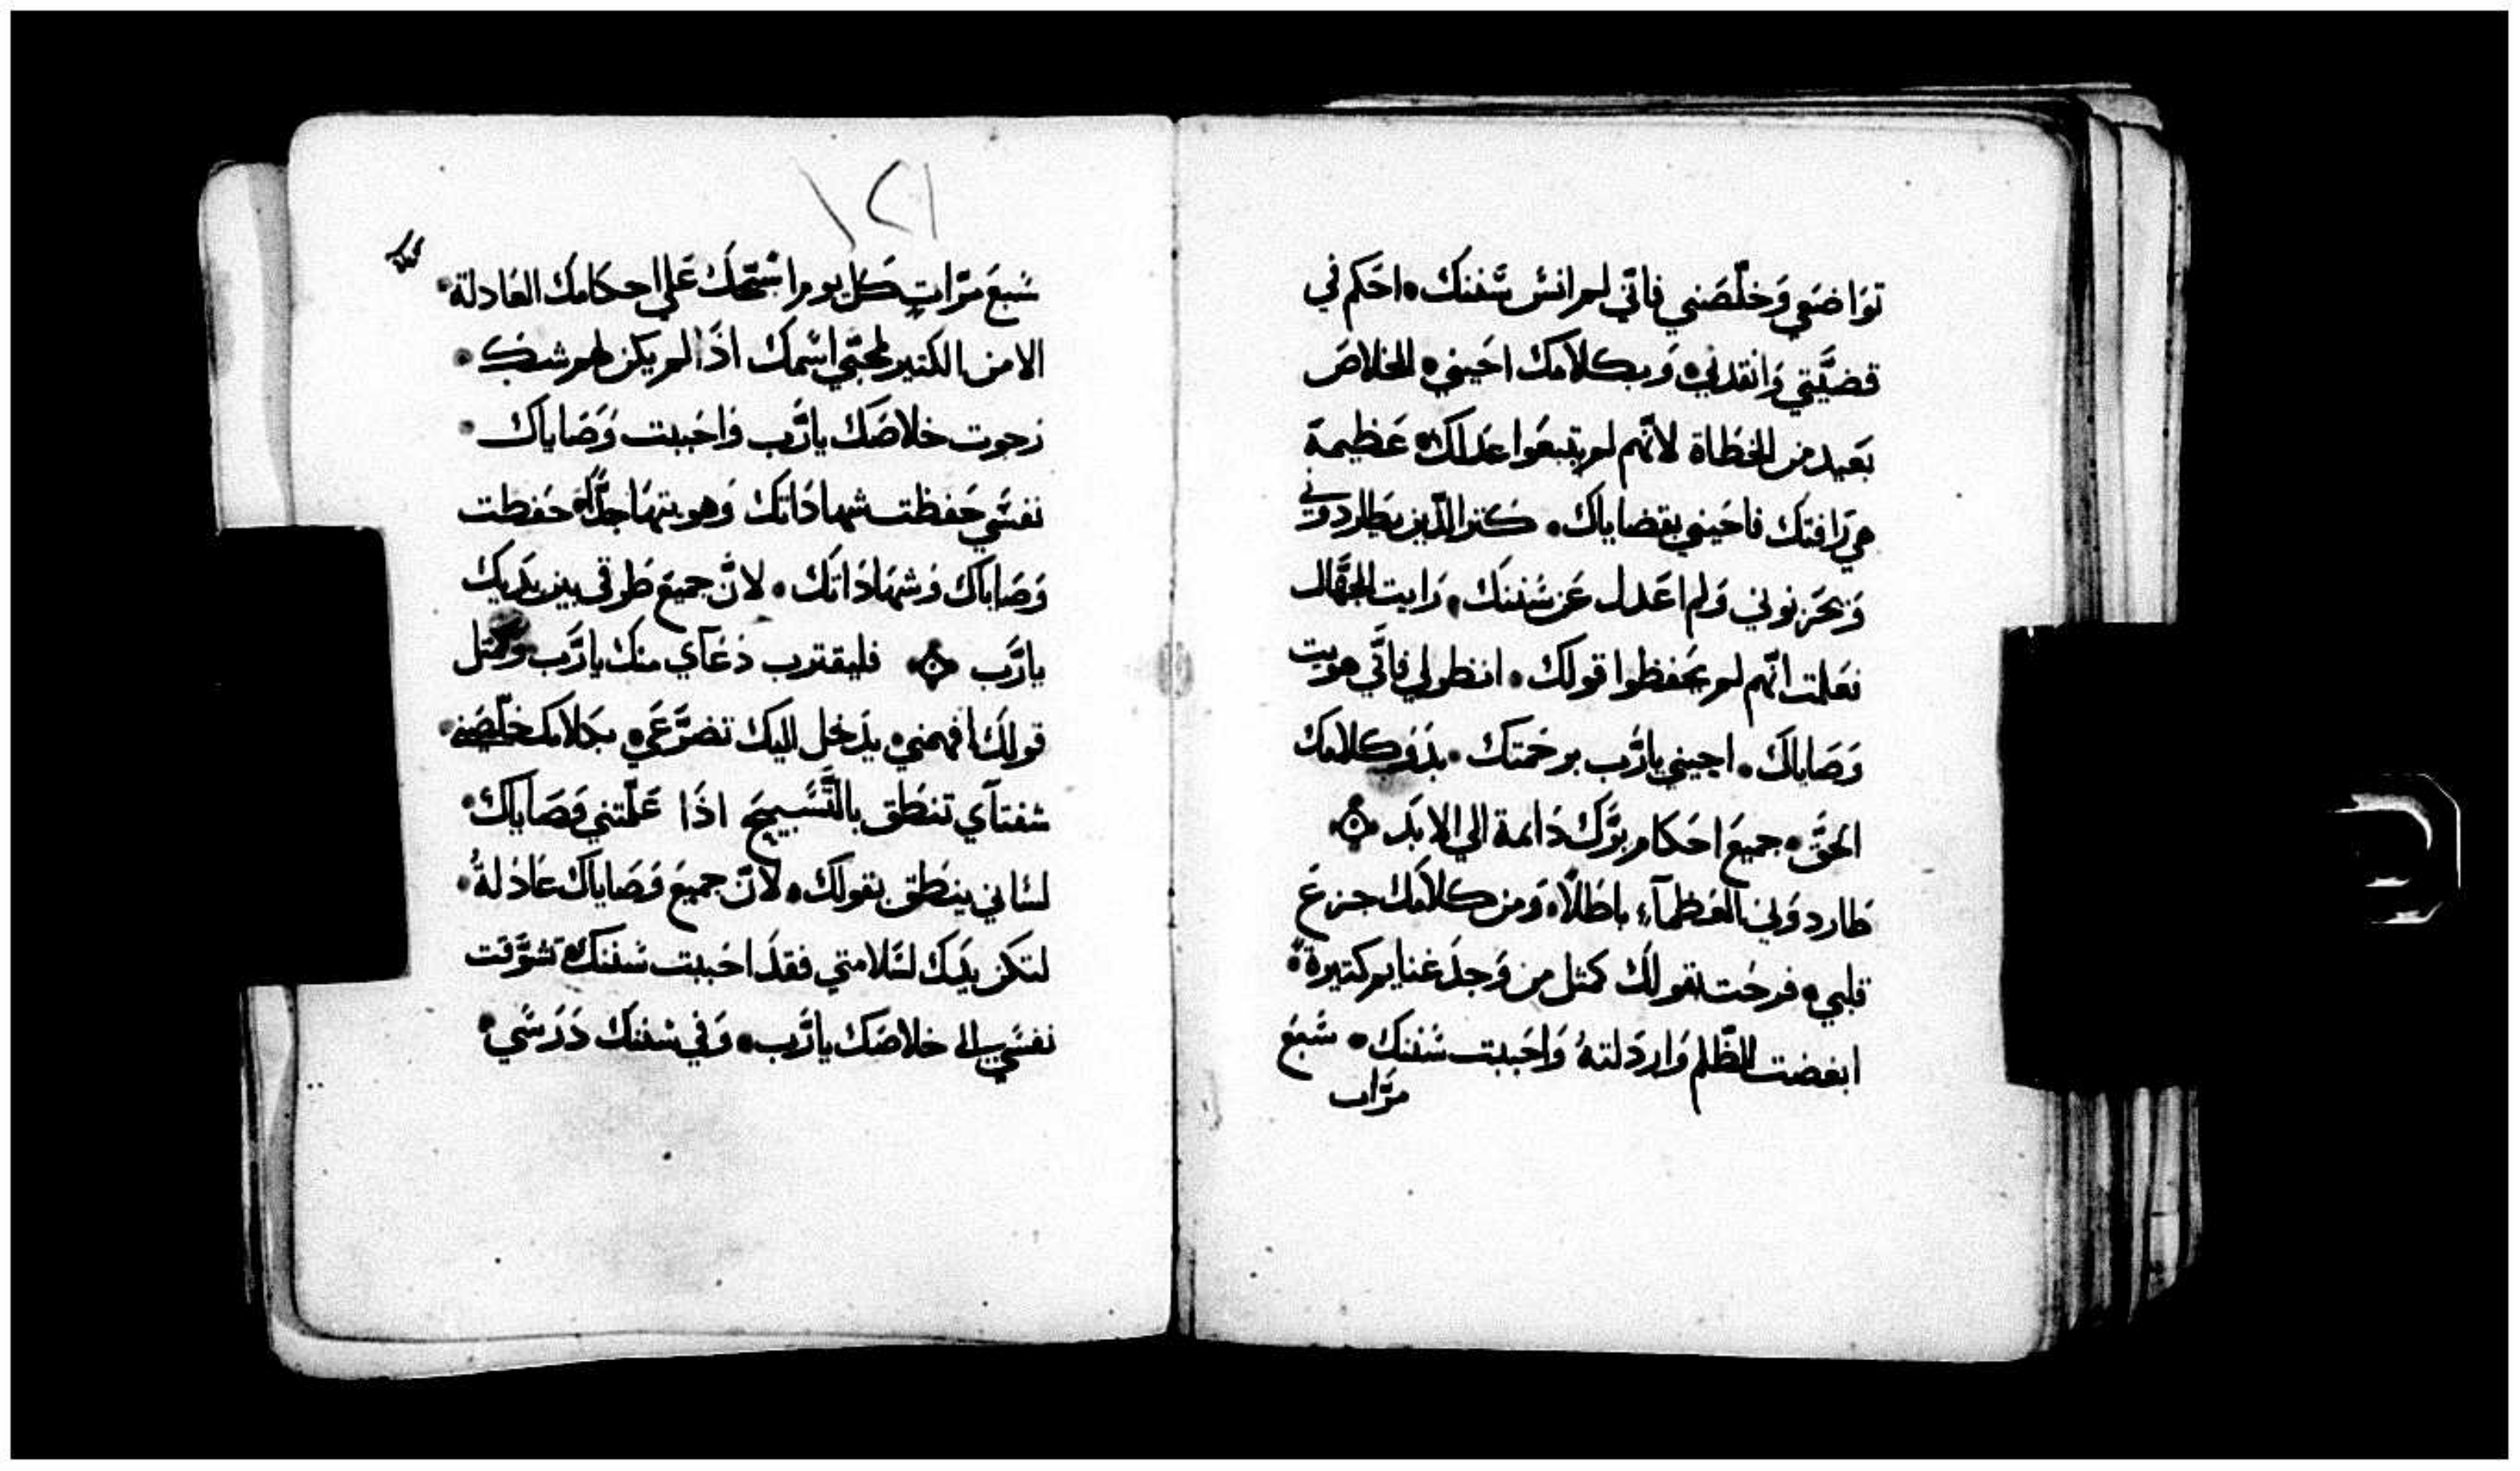 تَوَاضعَي وَخلّصَني فانّي لم انسَ سُننكَ • احَكم في
قضيَّتي وَانقدني • وَبكلامك احَيني • الخلاصَ
بَعيد من الخطَاة لانّهم لم يتبعَوا عَدلك • عَظيمة
هي رَافتك فاحَيني بقضاياك • كتر الدّين يطَاردوني
وَيحَزنوني وَلم اعَدل عَن سُننكَ • رَايت الجهَّال
فعَلمت انّهم لم يحَفظوا قولك • انظر لي فانَّي هويت
وَصَاياكَ • احيني يارَّب برحَمتك • بدَو كلامك
الحَقّ • جميعَ احَكام برَّك دَايمة الي الابَد
طَاردوَني العُظمآء باطَلاً • وَمن كلاَمك جزعَ
قلبي • فرحَت بقولَك كمثل من وَجدَ غنايم كتيرة
ابغضت الظّلم وَاردَلتهُ وَاحَببت سُننك • سَبعَ
مرَّات
١٢١
سَبعَ مرَّاتٍ كل يوم اسَبّحَك عَلي احكامك العَادلة
الامن الكتير لمحَبّي اسَمك اذَا لم يكن لهم شك
رَجوت خلاصَك يارَّب وَاحَببت وَصَاياك
نفسَي حَفظت شهادَاتك وَهويتهَا جدًّا • حَفطت
وَصَاياك وَشهَادَاتك • لانَّ جميعَ طَرقي بين يدَيك
يارَّب فليقترب دُعَآي منك يارَّب وَكمتل
قولك افهمني • يدَخل اليك تضرَّعَي • بكلامك خلّصَني
شفتآي تنطَق بالتَّسَبيحَ اذَا عَلّمتني وَصَاياك
لسَاني ينطَق بقولك • لانّ جميعَ وَصَاياك عَادلةُ
لتكن يدَك لسَلامتي فقدَ احَببت سُننك • تشوَّقت
نفسَي الي خلاصَك يارَّب • وَفي سُننك دَرسَي